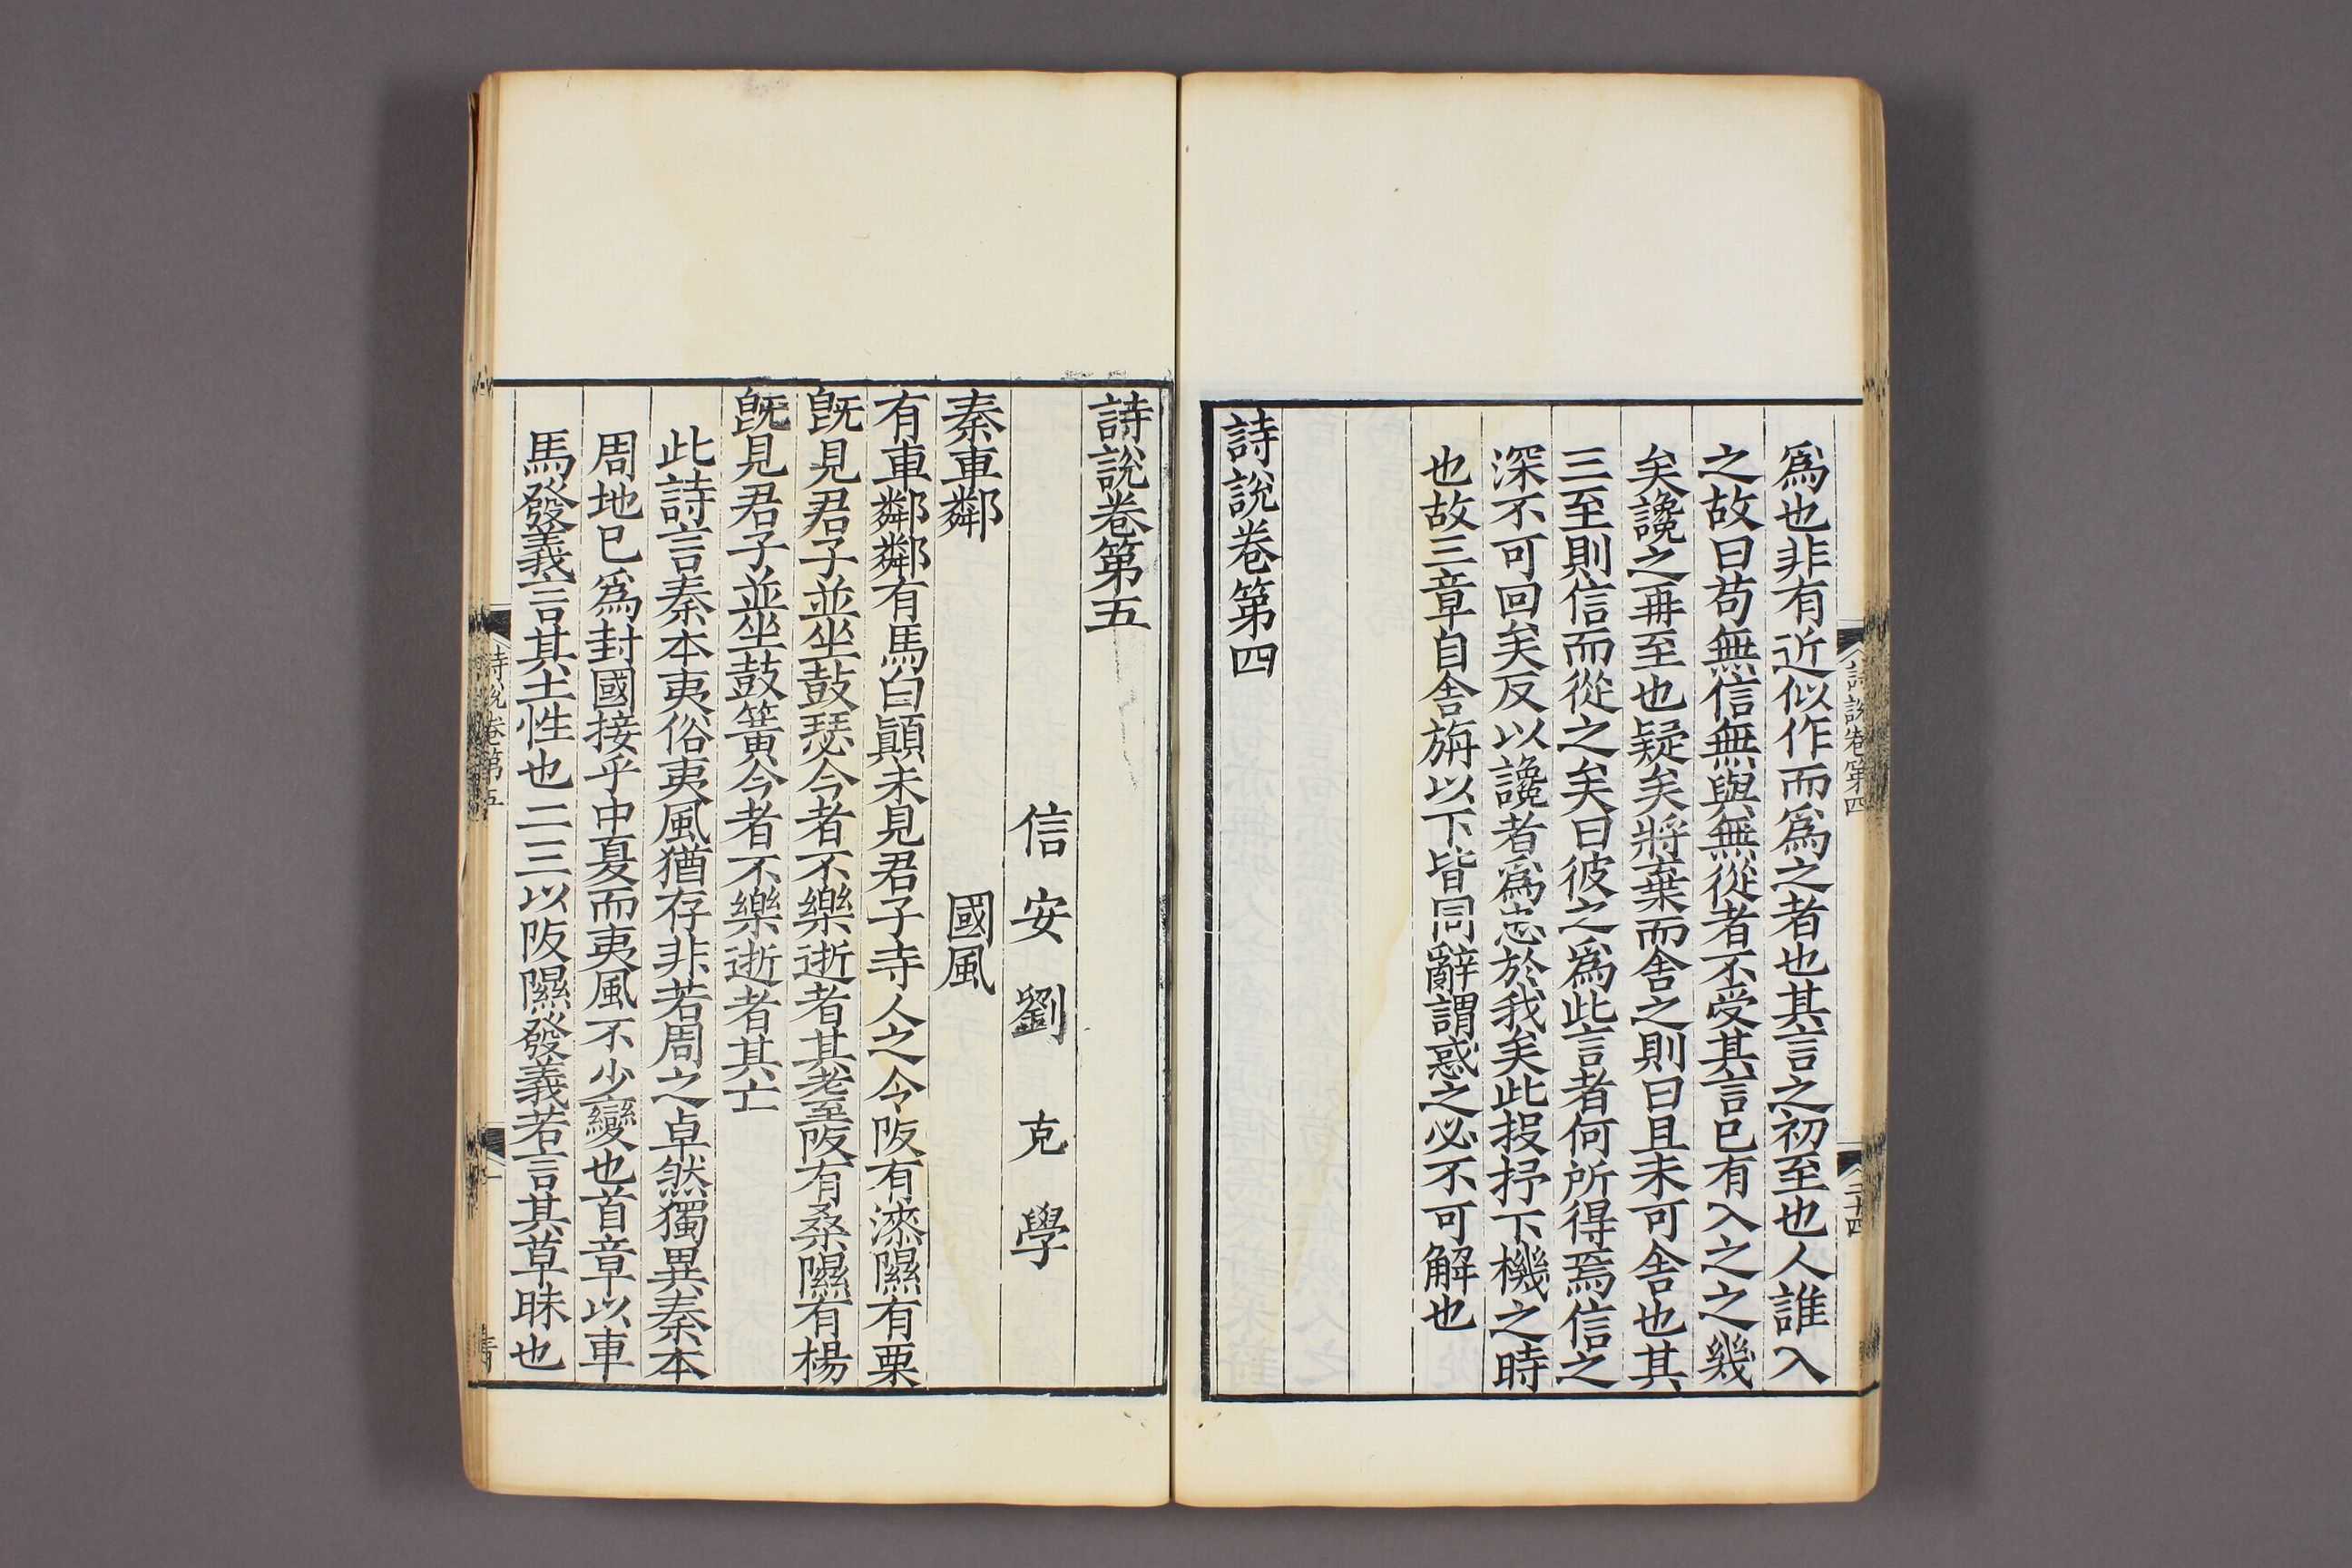 爲也非有近似作而爲之者也其言之初至也人誰入
之故曰苟無信無與無從者不受其言已有入之之幾
矣讒之再至也疑矣將棄而舍之則曰且未可舍也其
三至則信而從之矣曰彼之爲此言者何所得焉信之
深不可回矣反以讒者爲忠於我矣此投抒下機之時
也故三章自舍旃以下皆同辭謂惑之必不可解也
詩說卷第四
詩說卷第四
三十四
詩說卷第五
信安劉克學
秦車鄰
國風
有車鄰鄰有馬白顚未見君子寺人之令阪有漆隰有栗
旣見君子並坐鼓瑟今者不樂逝者其耋阪有桑隰有楊
旣見君子並坐鼓簧今者不樂逝者其亡
此詩言秦本夷俗夷風猶存非若周之卓然獨異秦本
周地已爲封國接乎中夏而夷風不少變也首章以車
馬發義言其土性也二三以阪隰發義若言其草昧也
詩說卷第五